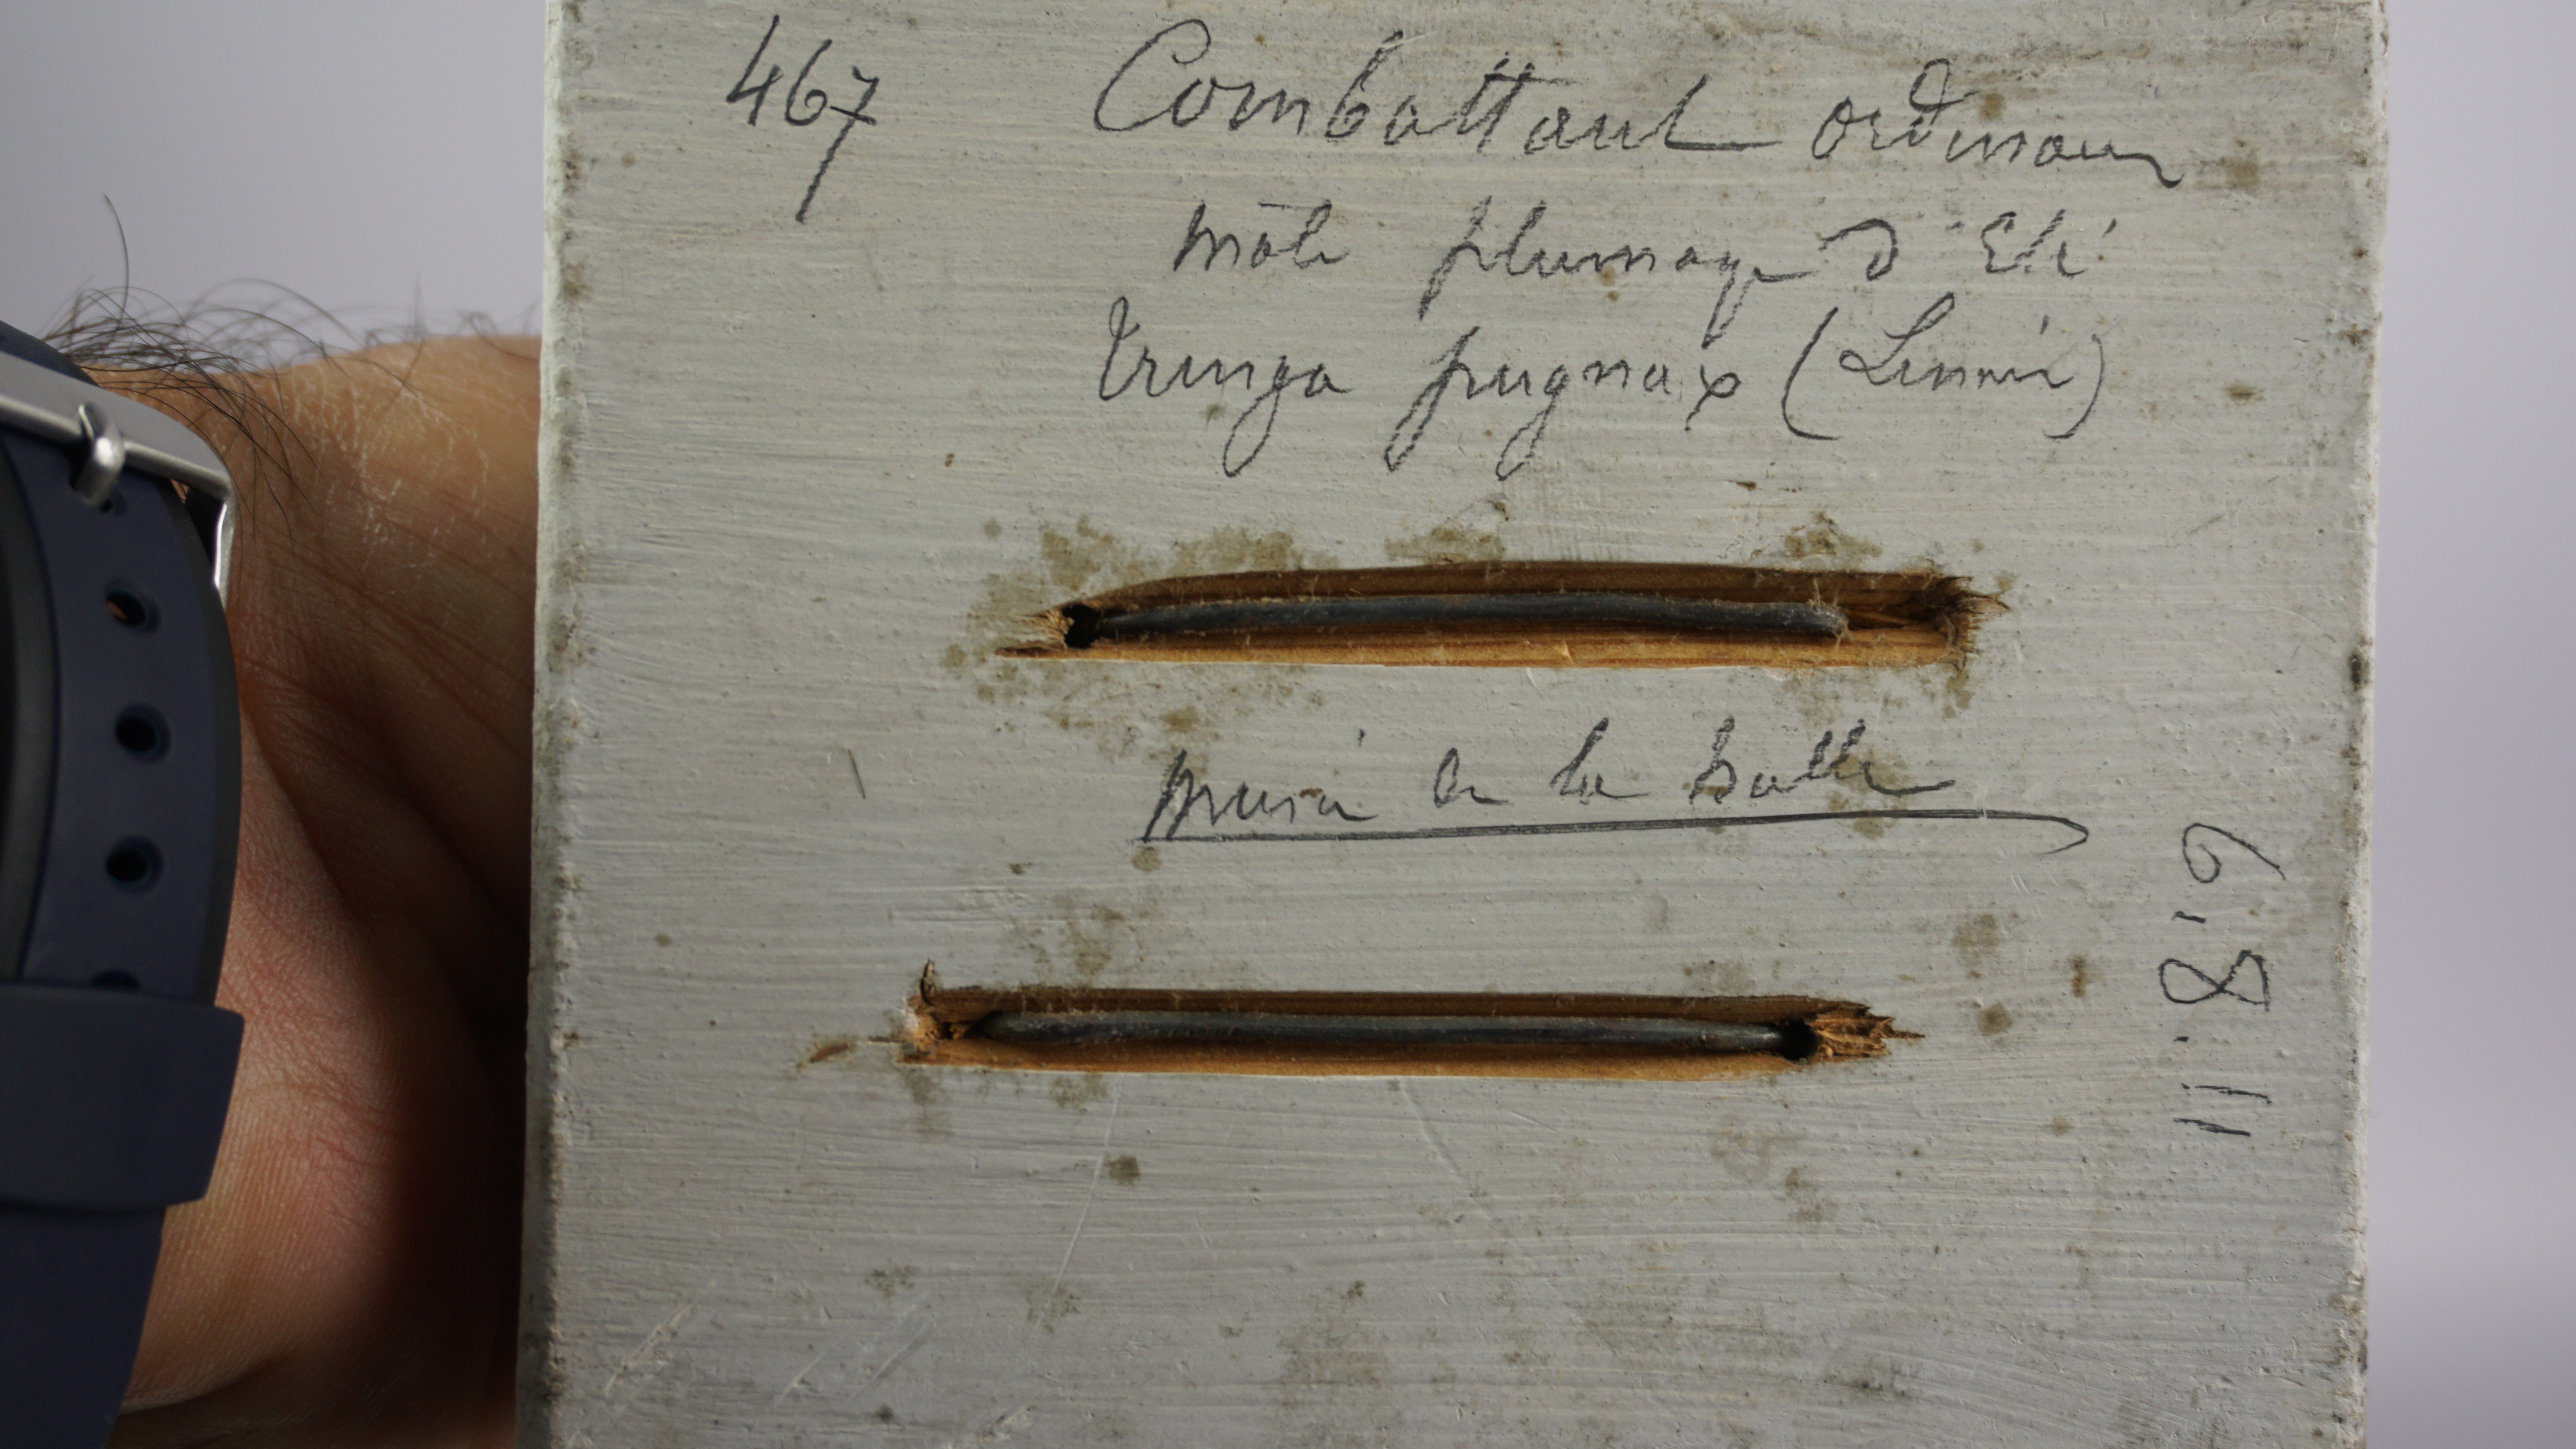 467 Combattant ordinaire
mâle plumage d'Eté
Tringa pugnax (Linné)
musée de la halle
11.8.9